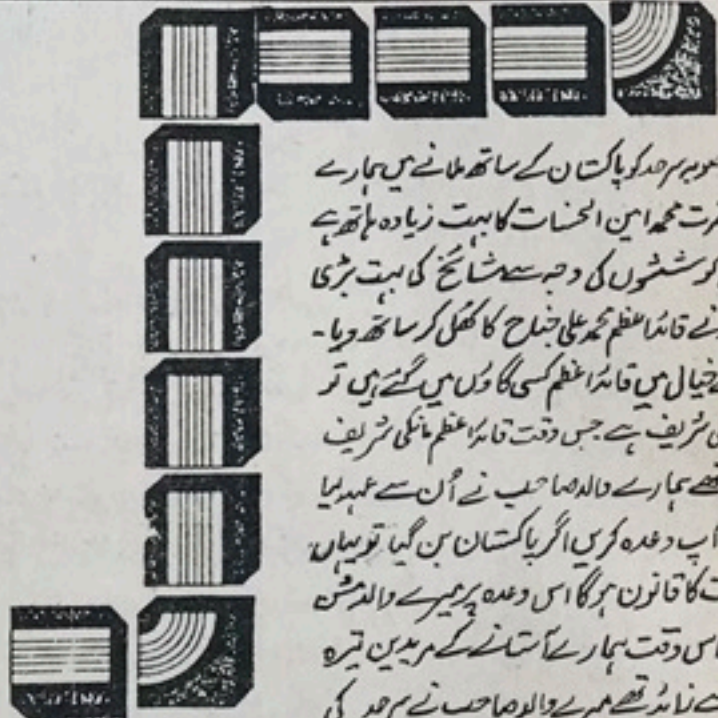 صوبہ سرحد کو پاکستان کے ساتھ ملانے میں ہمارے
محمد امین الحسنات کا بہت زیادہ ہاتھ ہے
کوششوں کی وجہ سے مشائخ کی بہت بڑی
نے قائداعظم محمد علی جناح کا کھل کر ساتھ دیا۔
خیال میں قائداعظم کسی گاؤں میں گئے ہیں تو
شریف ہے جس وقت قائداعظم مانکی شریف
ہمارے والد صاحب نے اُن سے عہد لیا
آپ وعدہ کریں اگر پاکستان بن گیا تو یہاں
کا قانون ہوگا اس وعدہ پر میرے والد
اس وقت ہمارے آستانے کے مریدین تیرہ
زائد تھے میرے والد صاحب نے سرحد کی